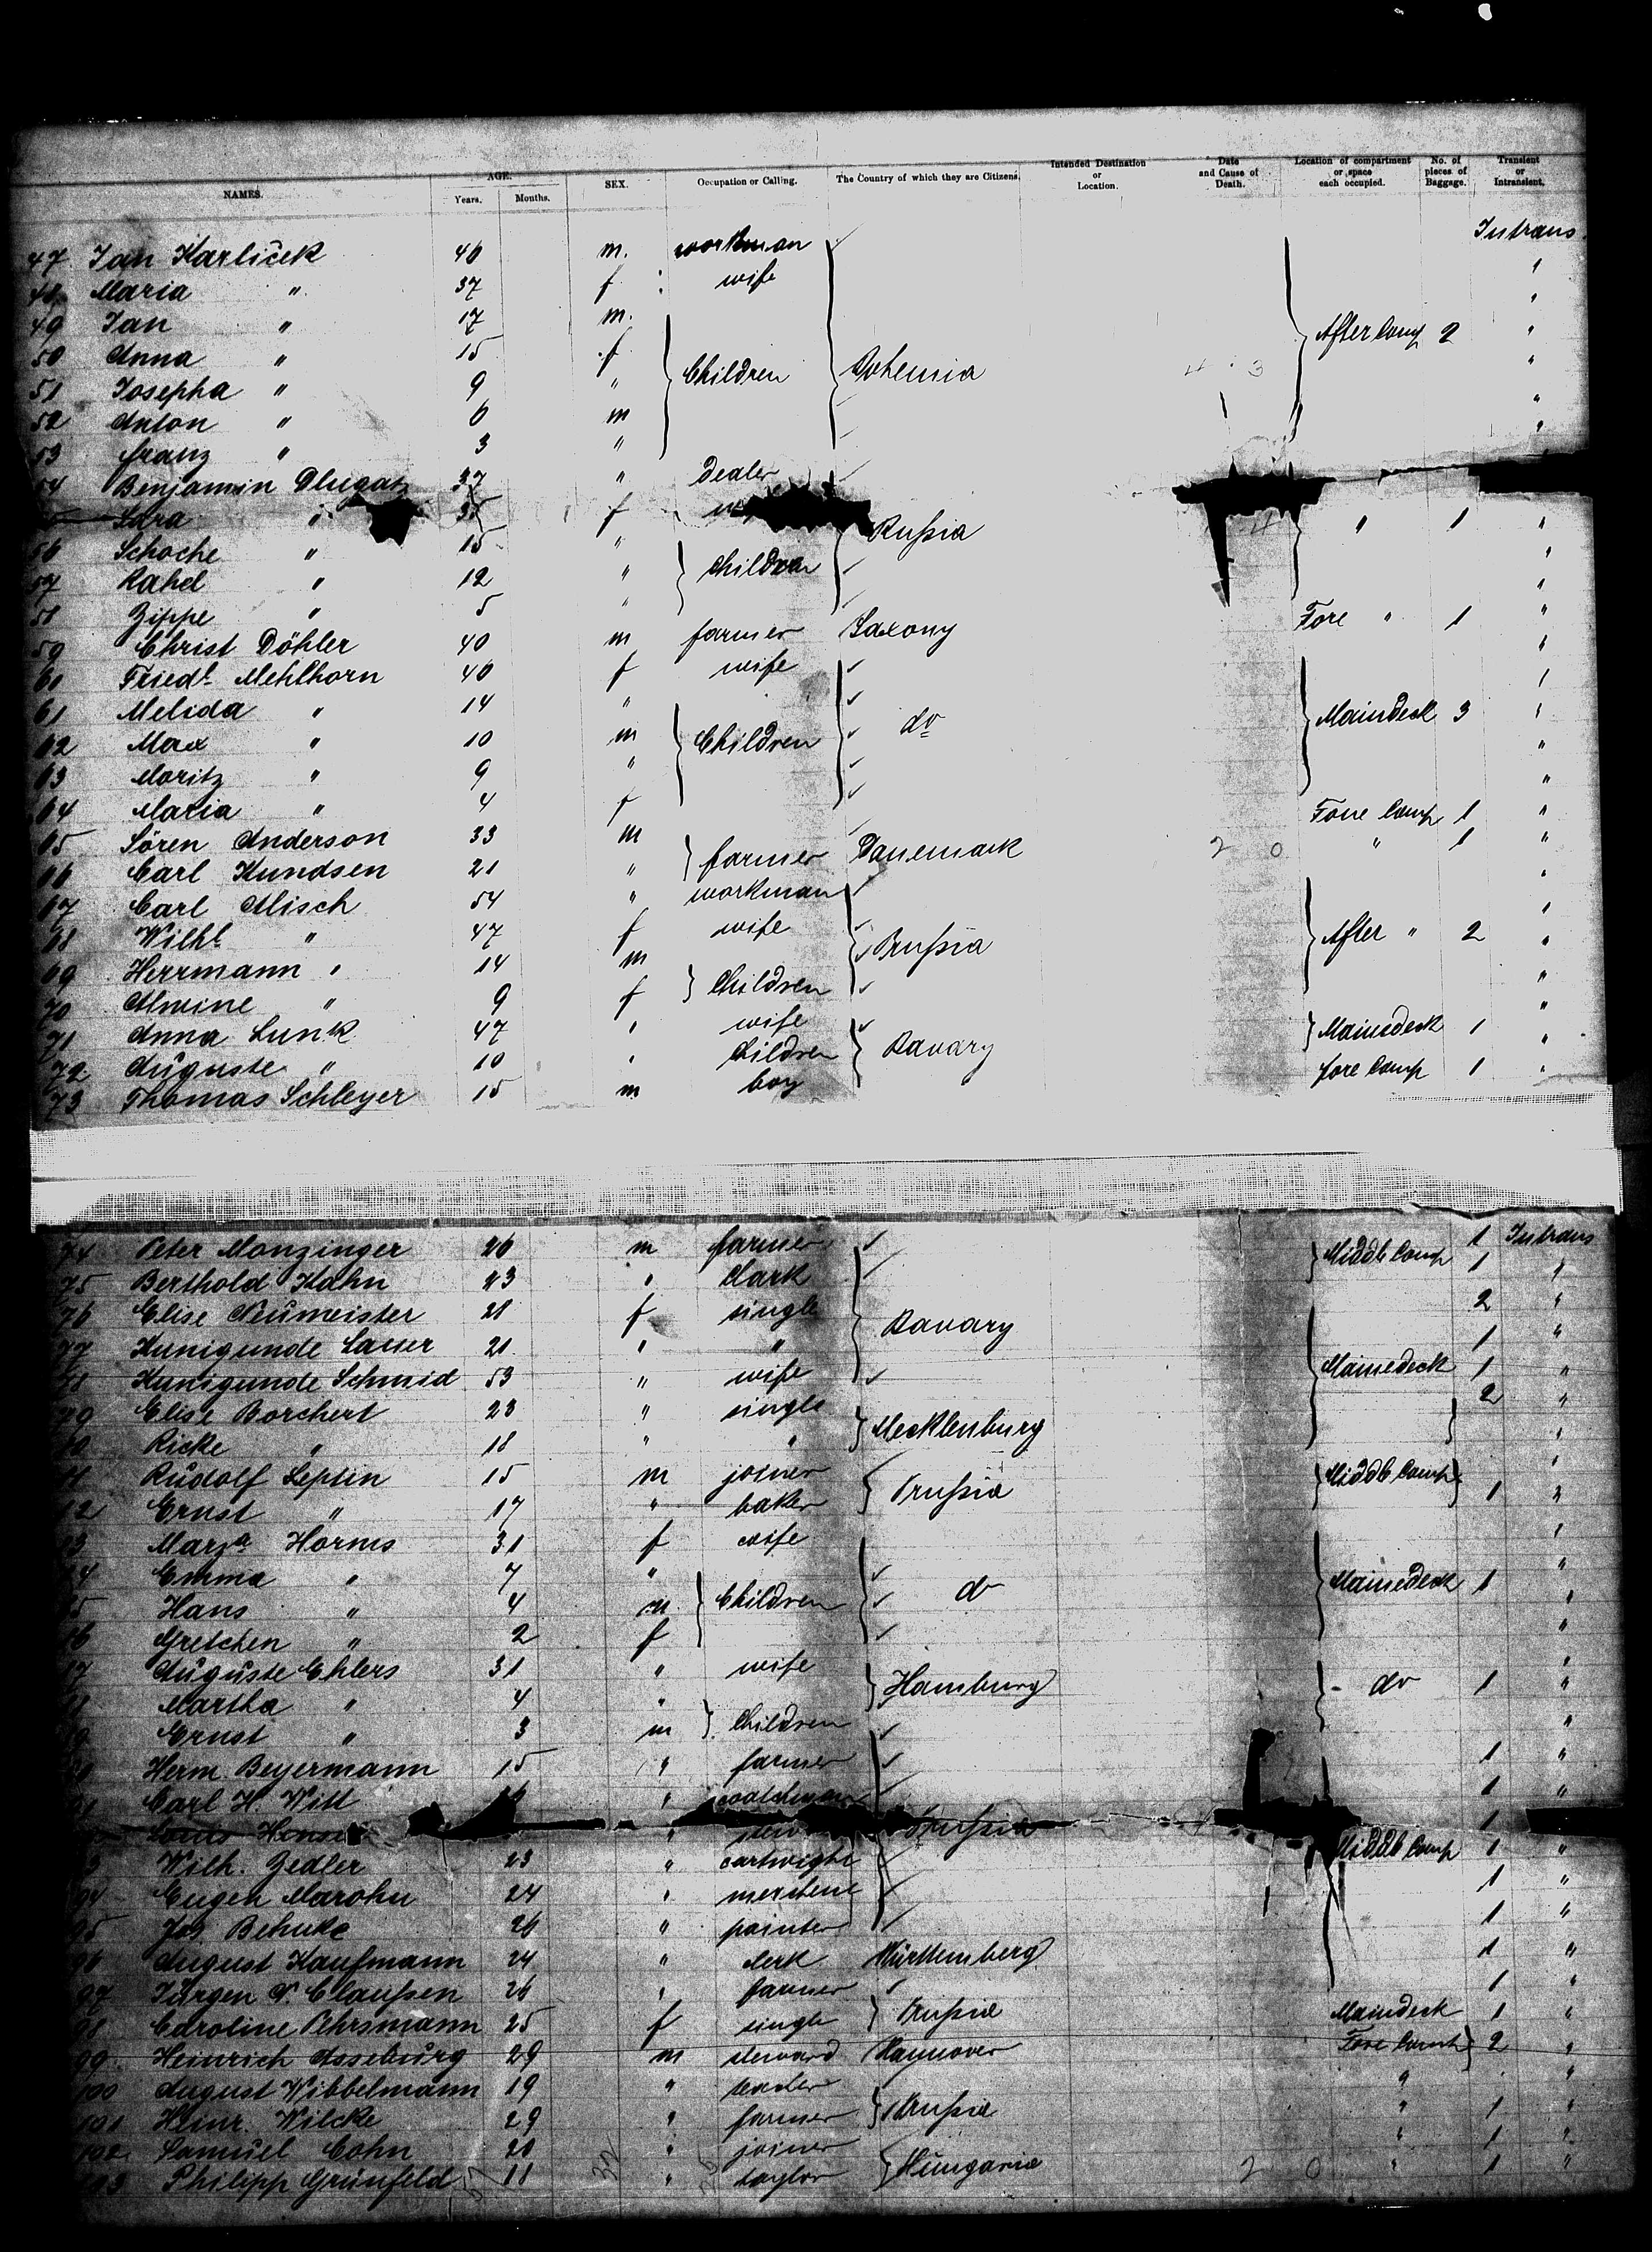 NAMES. AGE. Years. Months. SEX. Occupation or Calling. The Country of which they are Citizens. Intended Destination or Location. Date and Cause of Death. Location of compartment or space each occupied. No. of pieces of Baggage. Transient or Intransient.
47 Jan Karliček 46 m. workman Intrans
48 Maria " 37 f wife "
49 Jan " 17 m. "
50 Anna " 15 f After Comp 2 "
51 Josepha " 9 " Children Bohemia "
52 Anton " 6 m "
53 Franz " 3 " "
54 Benjamin Dlugatz 37 " Dealer
Sara " 35 f Rußia " 1 "
56 Schoche " 15 " "
57 Rahel " 12 " Children "
58 Zippe " 5 " "
59 Christ Döhler 40 m farmer Saxony Fore " 1 "
Friedl. Mehlhorn 40 f wife "
61 Melida " 14 " "
62 Max " 10 m Children do Maindeck 3 "
63 Moritz " 9 " "
64 Maria " 4 f "
65 Sören Anderson 33 m Fore Comp 1 "
66 Carl Kundsen 21 " farmer Danemark " 1 "
67 Carl Misch 54 " workman "
68 Wilhl. " 47 f wife Prußia After " 2 "
69 Herrmann " 14 m "
70 Alwine " 9 f Children "
71 Anna Lunk 47 " wife Mainedeck 1 "
72 Auguste " 10 " Children Bavary "
73 Thomas Schleyer 15 m boy fore Comp 1 "
74 Peter Monzinger 26 m farmer Middb Comp 1 Intrans
75 Berthold Hahn 23 " Clark 1 "
76 Elise Neumeister 21 f single Bavary 2 "
77 Kunigunde Lauer 21 " " 1 "
78 Kunigunde Schmid 53 " wife Mainedeck 1 "
79 Elise Borchert 23 " single Mecklenburg 2 "
Ricke " 18 " " "
Rudolf Leptin 15 m joiner Prußia Middb Comp "
Ernst " 17 " baker 1 "
Marga Horms 31 f wife "
Emma " 7 " "
Hans " 4 m Children do Mainedeck 1 "
Gretchen " 2 f "
Auguste Ehlers 31 " wife Hamburg "
Martha " 4 " do 1 "
Ernst " 3 m Children "
Herm. Beyermann 15 " farmer 1 "
Carl H. Witt " 1 "
" Prußia 1
Wilh. Zedler 23 " cartwight Middb Comp 1 "
94 Eugen Marohn 24 " 1 "
95 Jos. Behnke 26 " painter 1 "
96 August Kaufmann 24 " clerk Württemberg 1 "
97 Jürgen Claußen 26 " farmer 1 "
98 Caroline 25 f single Prußia Maindeck 1 "
99. Heinrich Asseburg 29 m steward Hannover Fore Comp 2 "
100 August Wibbelmann 19 " " "
101 Heinr. Wilcke 29 " farmer Prußia " 1 "
102 Samuel Cohn 20 " joiner " 1 "
103 Philipp Grünfeld 11 " taylor Hungaria 2 0 " 1 "